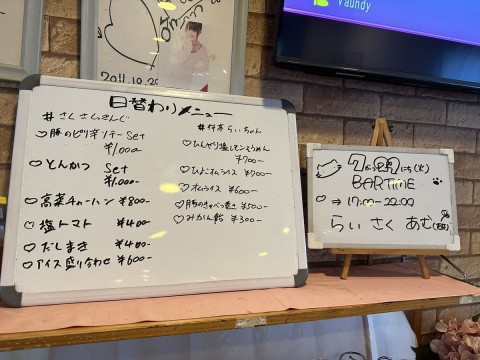 Vaundy
2011.10.29
日替わりメニュー
# さんさんさんじ
♡豚のピリ辛ソテー Set
¥1,000
♡とんかつ Set
¥1,000-
♡高菜チャーハン ¥800-
♡塩トマト ¥400-
♡だしまき ¥400-
♡アイス盛り合わせ ¥600-
# 料亭らいちゃん
♡ひんやり塩レモンそうめん
¥700-
♡ひよこオムライス ¥700-
♡オムライス ¥600-
♡豚のきゃべつ巻き ¥500-
♡みかん飴 ¥300-
7がつ29にち(火)
BARTIME
♡ ⇒ 17:00-22:00
♡ らい さく あむ